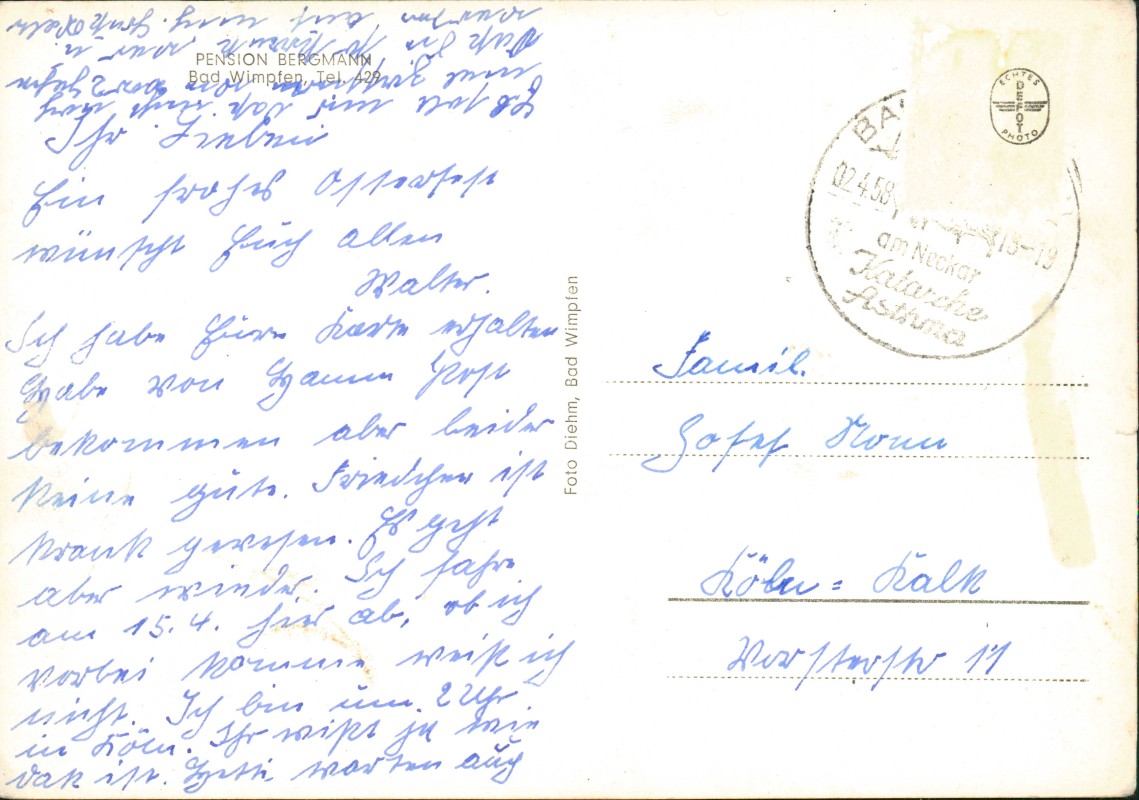 PENSION BERGMANN
Bad Wimpfen, Tel. 429
Ihr Lieben
Ein frohes Osterfest
wünscht Euch allen
Walter.
Ich habe Eure Karte erhalten
Habe von Hamm Post
bekommen aber leider
keine gute. Friedchen ist
krank gewesen. Es geht
aber wieder. Ich fahre
am 15.4. hier ab, ob ich
vorbei komme weiß ich
nicht. Ich bin um 2 Uhr
in Köln. Ihr wißt ja wie
daß ist. Hetti warten auch
Foto Diehm, Bad Wimpfen
ECHTES
DEPOT
PHOTO
BA
02.4.58
18-19
am Neckar
Katarrhe
Asthma
Famil.
Josef Nonn
Köln = Kalk
Vorsterstr 11